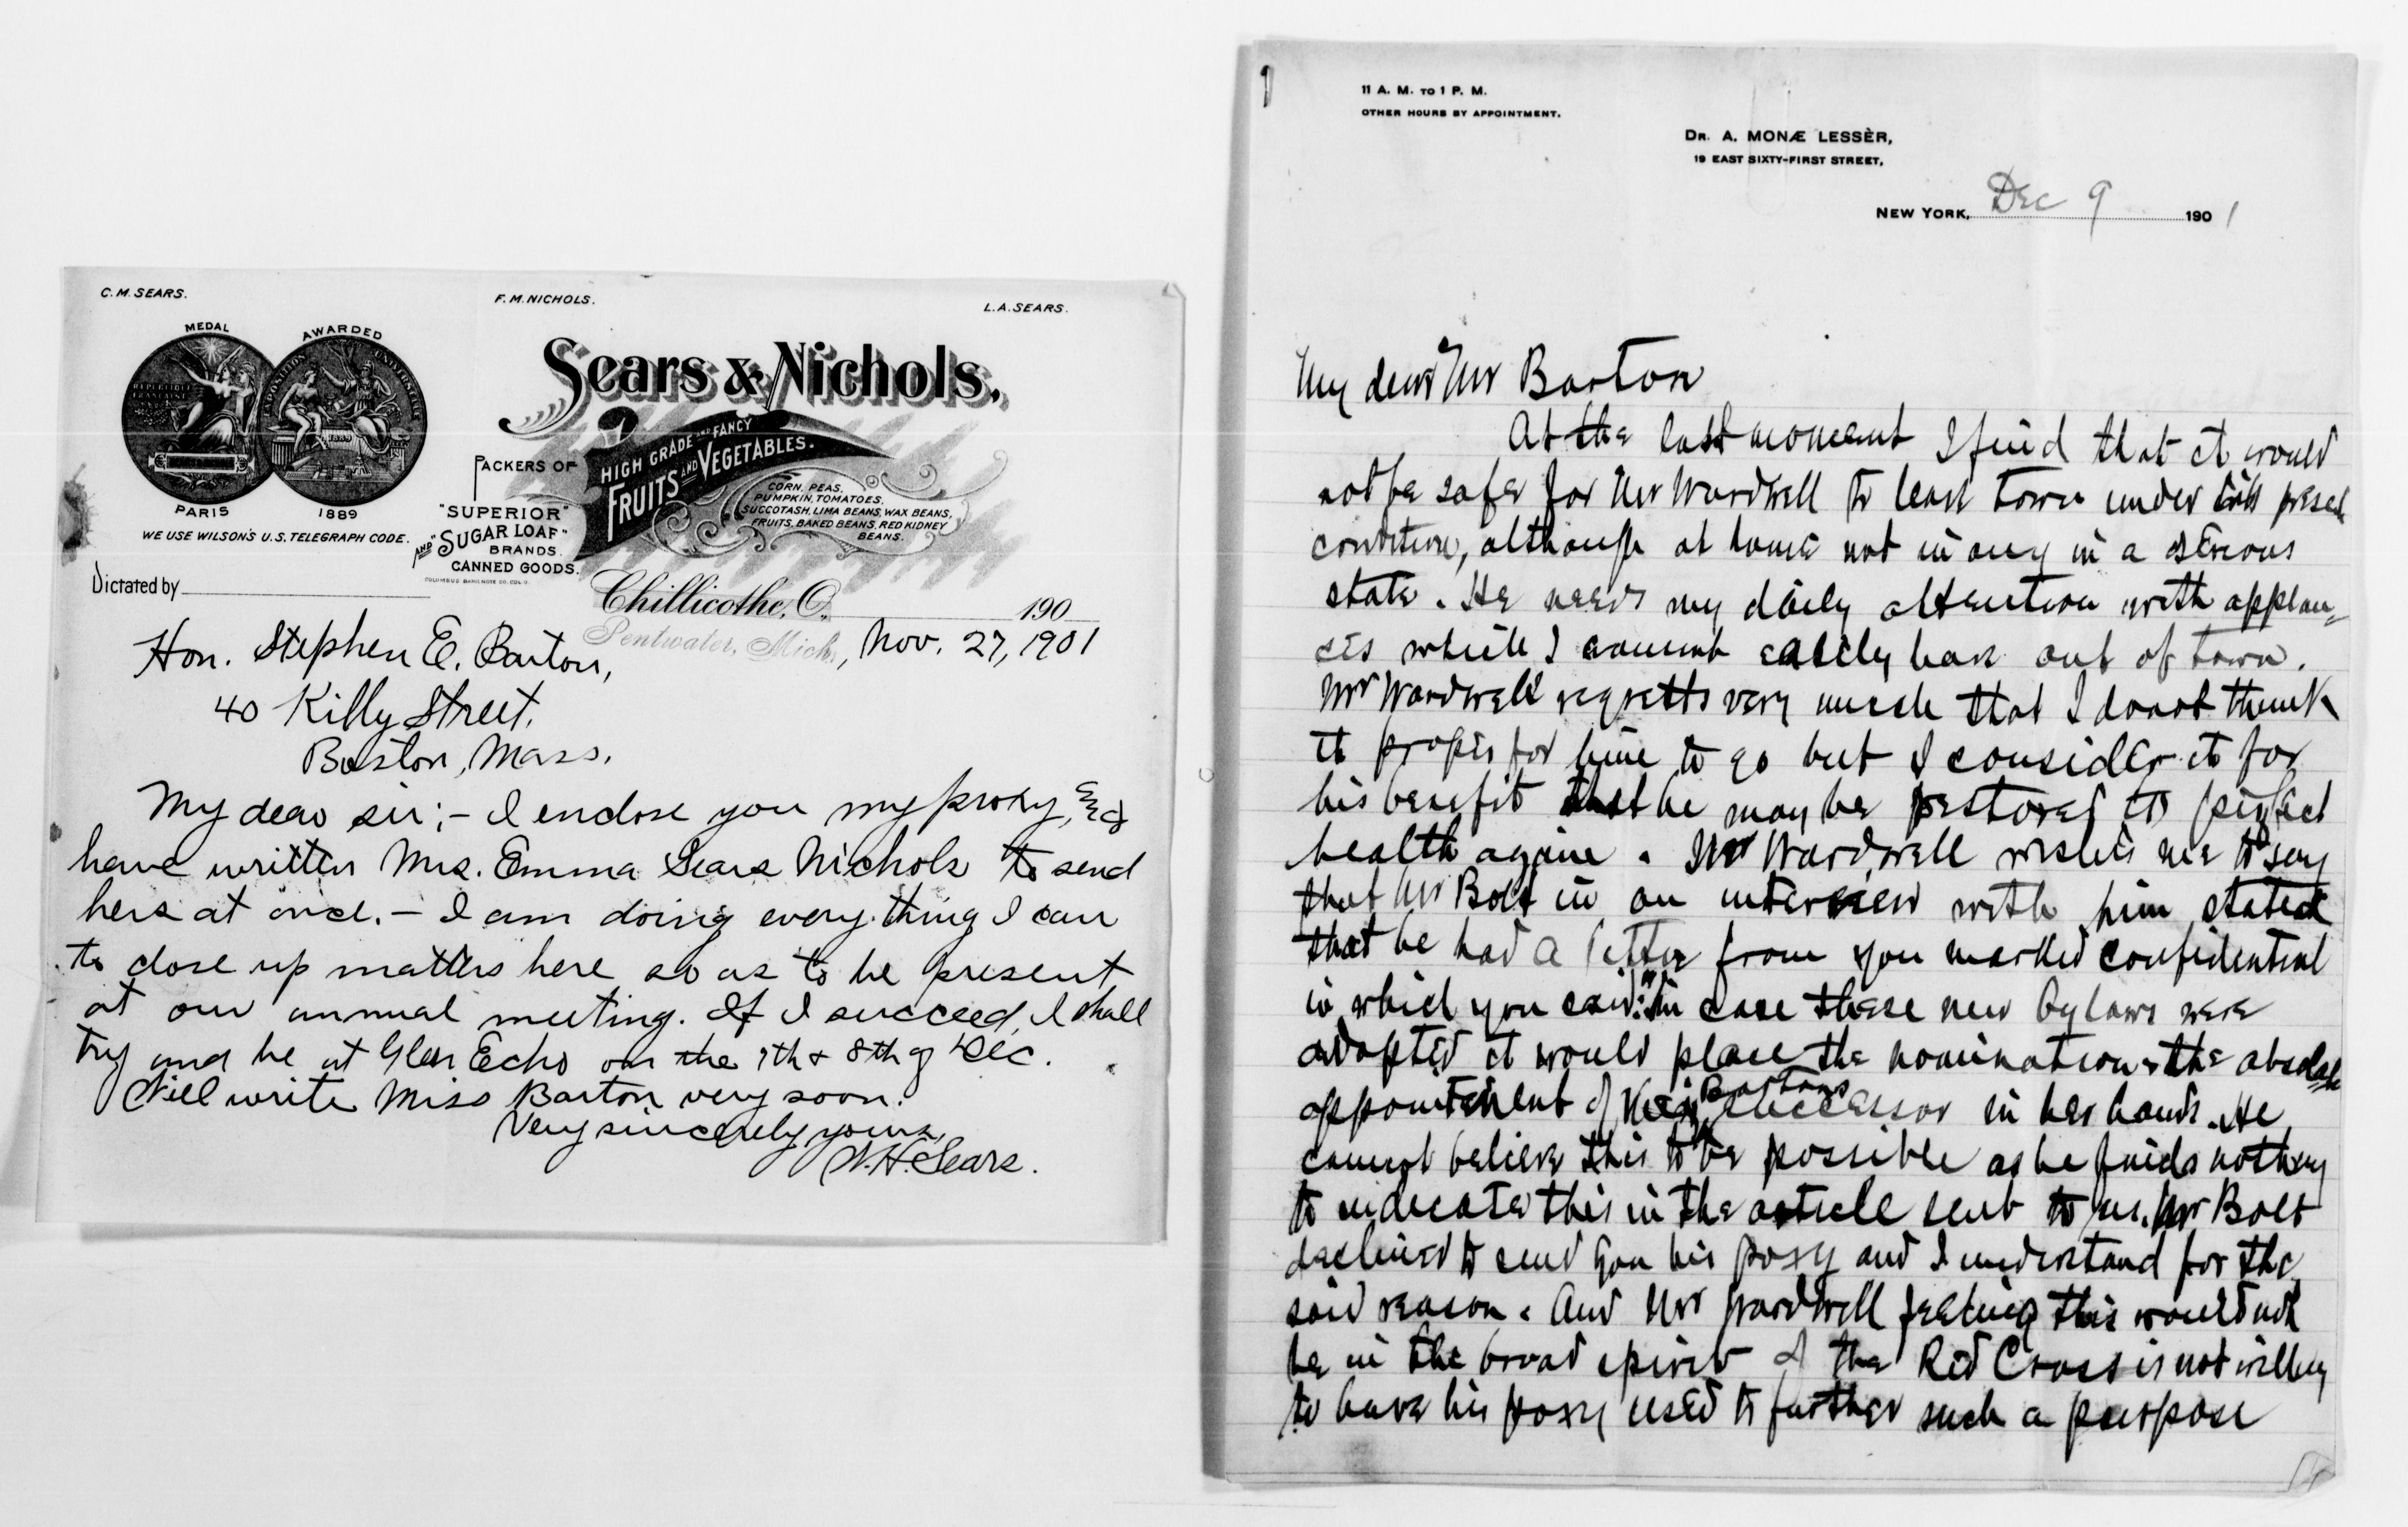 C.M. SEARS.
F. M. NICHOLS.
L.A. SEARS.
MEDAL
AWARDED
REPUBLIQUE
FRANCAISE
EXPOSITION
UNIVERSELLE
1889
PARIS
1889
WE USE WILSON'S U.S. TELEGRAPH CODE.
Sears & Nichols.
PACKERS OF
HIGH GRADE AND FANCY
FRUITS AND VEGETABLES.
CORN, PEAS,
PUMPKIN, TOMATOES,
SUCCOTASH, LIMA BEANS, WAX BEANS,
FRUITS, BAKED BEANS, RED KIDNEY
BEANS.
"SUPERIOR"
AND "SUGAR LOAF"
BRANDS.
CANNED GOODS.
COLUMBUS BANK NOTE CO. COL. O.
Dictated by
Chillicothe, O., 190
Pentwater, Mich., Nov. 27, 1901
Hon. Stephen E. Barton,
40 Kilby Street,
Boston, Mass.
My dear sir:- I enclose you my proxy, and
have written Mrs. Emma Sears Nichols to send
hers at once. - I am doing every thing I can
to close up matters here so as to be present
at our annual meeting. If I succeed, I shall
try and be at Glen Echo on the 7th & 8th of Dec.
Will write Miss Barton very soon.
Very sincerely yours,
W.H. Sears.
1
11 A. M. TO 1 P. M.
OTHER HOURS BY APPOINTMENT.
DR. A. MONÆ LESSÈR,
19 EAST SIXTY-FIRST STREET,
NEW YORK, Dec 9 1901
My dear Mr Barton
At the last moment I find that it would
not be safe for Mr Wardwell to leave town under his present
condition, although at home not in any in a serious
state. He needs my daily attention with applian=
ces which I cannot easily have out of town.
Mr Wardwell regretts very much that I do not think
it proper for him to go but I consider it for
his benefit that he may be restored to perfect
health again. Mr Wardwell wishes me to say
that Mr Bolt in an interview with him stated
that he had a letter from you marked confidential
in which you said: "In case these new bylaws were
adopted it would place the nomination & the absolute
appointment of Miss Bartons successor in her hands. He
cannot believe this to be possible as he finds nothing
to indicate this in the article sent to us. Mr Bolt
declined to send you his poxy and I understand for the
said reason. And Mr Wardwell feeling this would not
be in the broad spirit of the Red Cross is not willing
to have his poxy used to further such a purpose